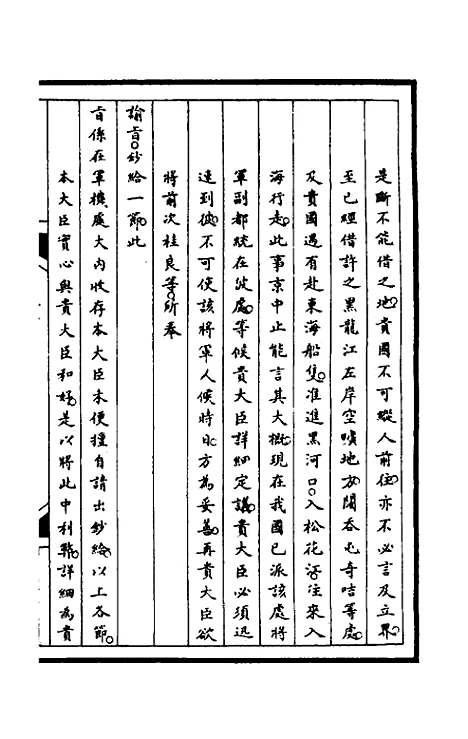 是斷不能借之地。貴國不可縱人前往。亦不必言及立界。
至已經借許之黑龍江左岸空曠地方。闊吞屯奇咭等處。
及貴國遇有赴東海船隻。准進黑河口。入松花江。往來入
海行走。此事京中止能言其大概。現在我國已派該處將
軍副都統在彼處。等候貴大臣詳細定議。貴大臣必須迅
速到彼。不可使該將軍人候時日。方為妥善。再貴大臣欲
將前次桂良等。所奉
諭旨。鈔給一節。此
旨係在軍機處大內收存本大臣未便擅自請出鈔給。以上各節。
本大臣實心與貴大臣和好。是以將此中利弊。詳細為貴